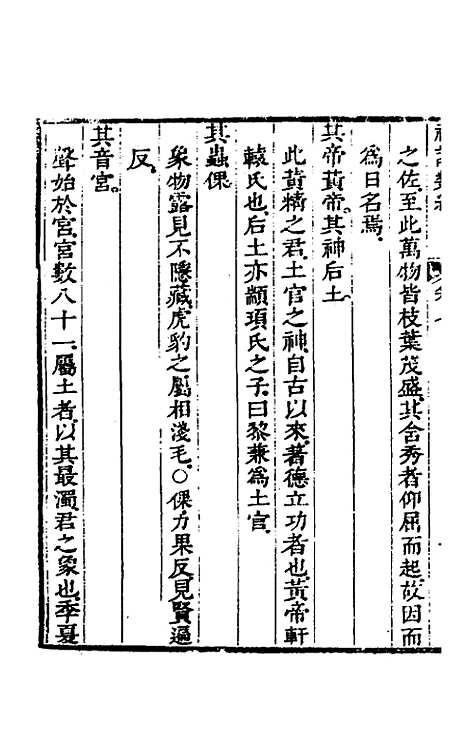 之佐至此萬物皆枝葉茂盛其含秀者仰屈而起故因而
爲日名焉
其帝黃帝。其神后土。
此黃精之君土官之神自古以來著德立功者也黃帝軒
轅氏也后土亦顓頊氏之子曰黎兼爲土官
其蟲倮
象物露見不隱藏虎豹之屬相淺毛〇倮力果反見賢遍
反
其音宮。
聲始於宮宮數八十一屬土者以其最濁君之象也季夏